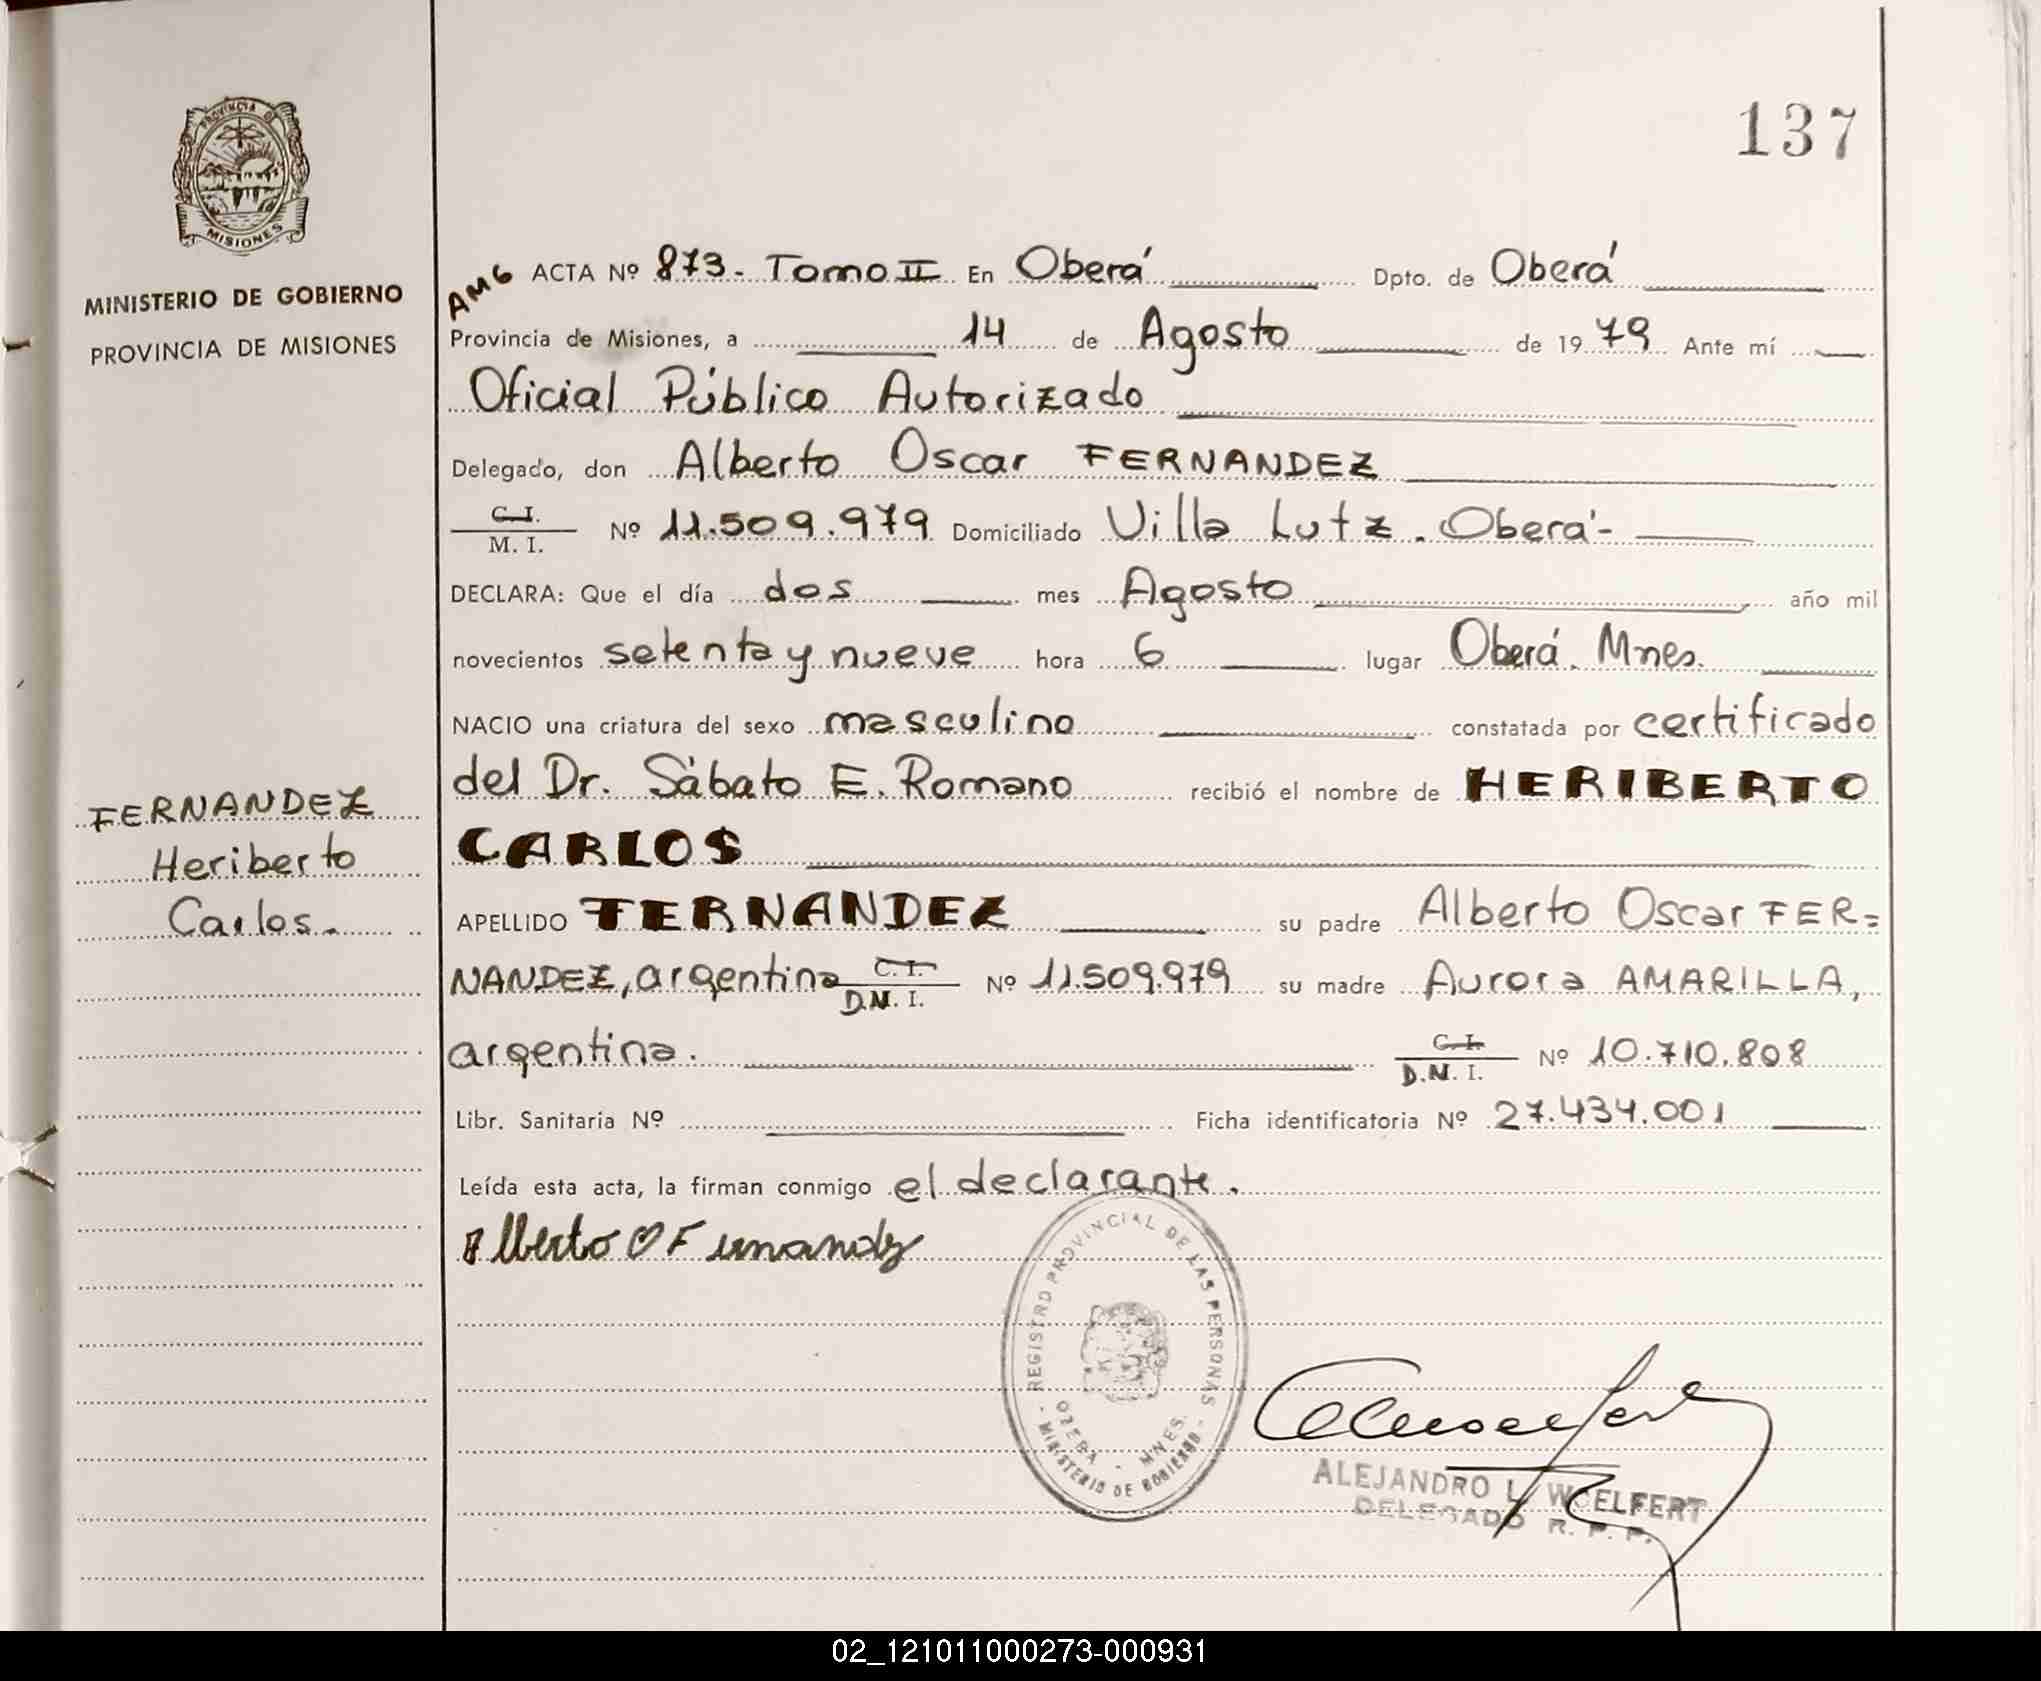 PROVINCIA DE
MISIONES
MINISTERIO DE GOBIERNO
PROVINCIA DE MISIONES
FERNANDEZ
Heriberto
Carlos.
137
AMG ACTA Nº 873. Tomo II En Oberá Dpto. de Oberá
Provincia de Misiones, a 14 de Agosto de 1979 Ante mí
Oficial Público Autorizado
Delegado, don Alberto Oscar FERNANDEZ
C. I.
M. I. Nº 11.509.979 Domiciliado Villa Lutz. Oberá-
DECLARA: Que el día dos mes Agosto año mil
novecientos setenta y nueve hora 6 lugar Oberá. Mnes.
NACIO una criatura del sexo masculino constatada por certificado
del Dr. Sábato E. Romano recibió el nombre de HERIBERTO
CARLOS
APELLIDO FERNANDEZ su padre Alberto Oscar FER=
NANDEZ, argentina C. I. D.N. I. Nº 11.509.979 su madre Aurora AMARILLA,
argentina. C. I. D.N. I. Nº 10.710.808
Libr. Sanitaria Nº Ficha identificatoria Nº 27.434.001
Leída esta acta, la firman conmigo el declarante.
Alberto O Fernandz
REGISTRO PROVINCIAL DE LAS PERSONAS
OBERA - MNES.
MINISTERIO DE GOBIERNO
ALEJANDRO L. WOELFERT
DELEGADO R. P. P.
02_121011000273-000931